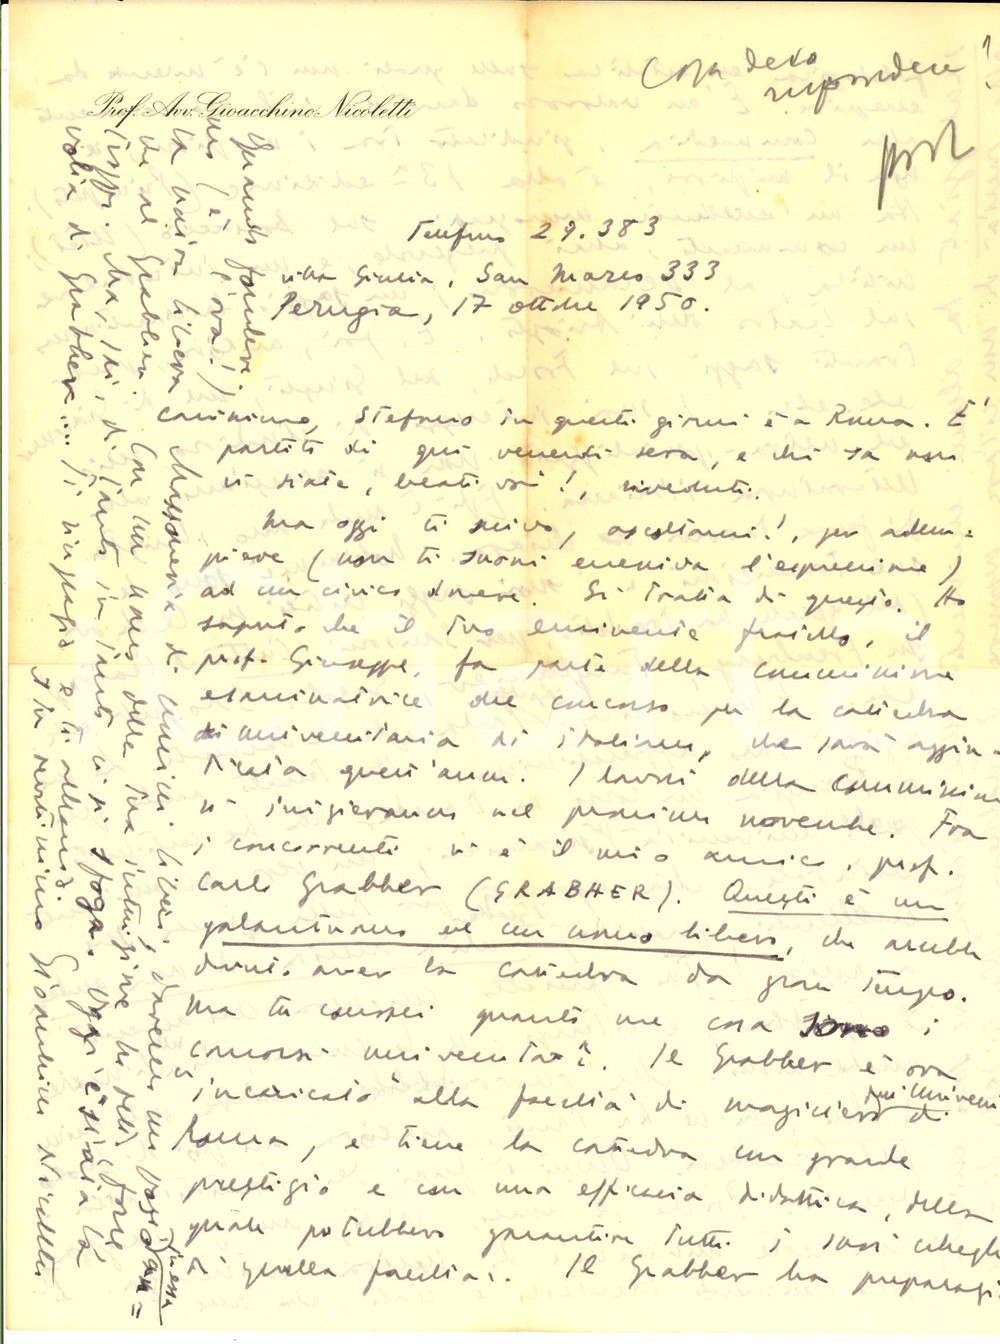 Cosa devo
rispondere!
Prof. Avv. Gioacchino Nicoletti
Telefono 29.383
villa Giulia, San Marco 333
Perugia, 17 ottobre 1950.
Carissimo, Stefano in questi giorni è a Roma. È
partito di qui venerdì sera, e chi sa non
vi siate, beati voi!, riveduti.
Ma oggi ti scrivo, ascoltami!, per adem=
piere (non ti suoni enfatica l'espressione)
ad un civico dovere. Si tratta di questo. Ho
saputo che il tuo eminente fratello, il
prof. Giuseppe, fa parte della commissione
esaminatrice del concorso per la cattedra
universitaria di italiano, che sarà aggiu=
dicata quest'anno. I lavori della Commissione
si inizieranno nel prossimo novembre. Fra
i concorrenti vi è il mio amico, prof.
Carlo Grabher (GRABHER). Questi è un
galantuomo ed un uomo libero, che avrebbe
dovuto aver la cattedra da gran tempo.
Ma tu conosci quanto me cosa sono i
concorsi universitari. Il Grabher è ora
"incaricato" alla facoltà di magistero di
Roma, e tiene la cattedra con grande
prestigio e con una efficacia didattica, della
quale potrebbero garantire tutti i suoi colleghi
di quella facoltà. Il Grabher ha preparato
Quando fondere=
mo (è l'ora!)
la nuova libera
Massoneria di uomini liberi, daremo un
di al Grabher. Con un uomo della tua intuizione ho detto forse
troppo. Ma, sai, di tanto in tanto ci si sfoga. Oggi è stata la
volta di Grabher.... Ti ringrazio e ti abbraccio
Gioacchino Nicoletti